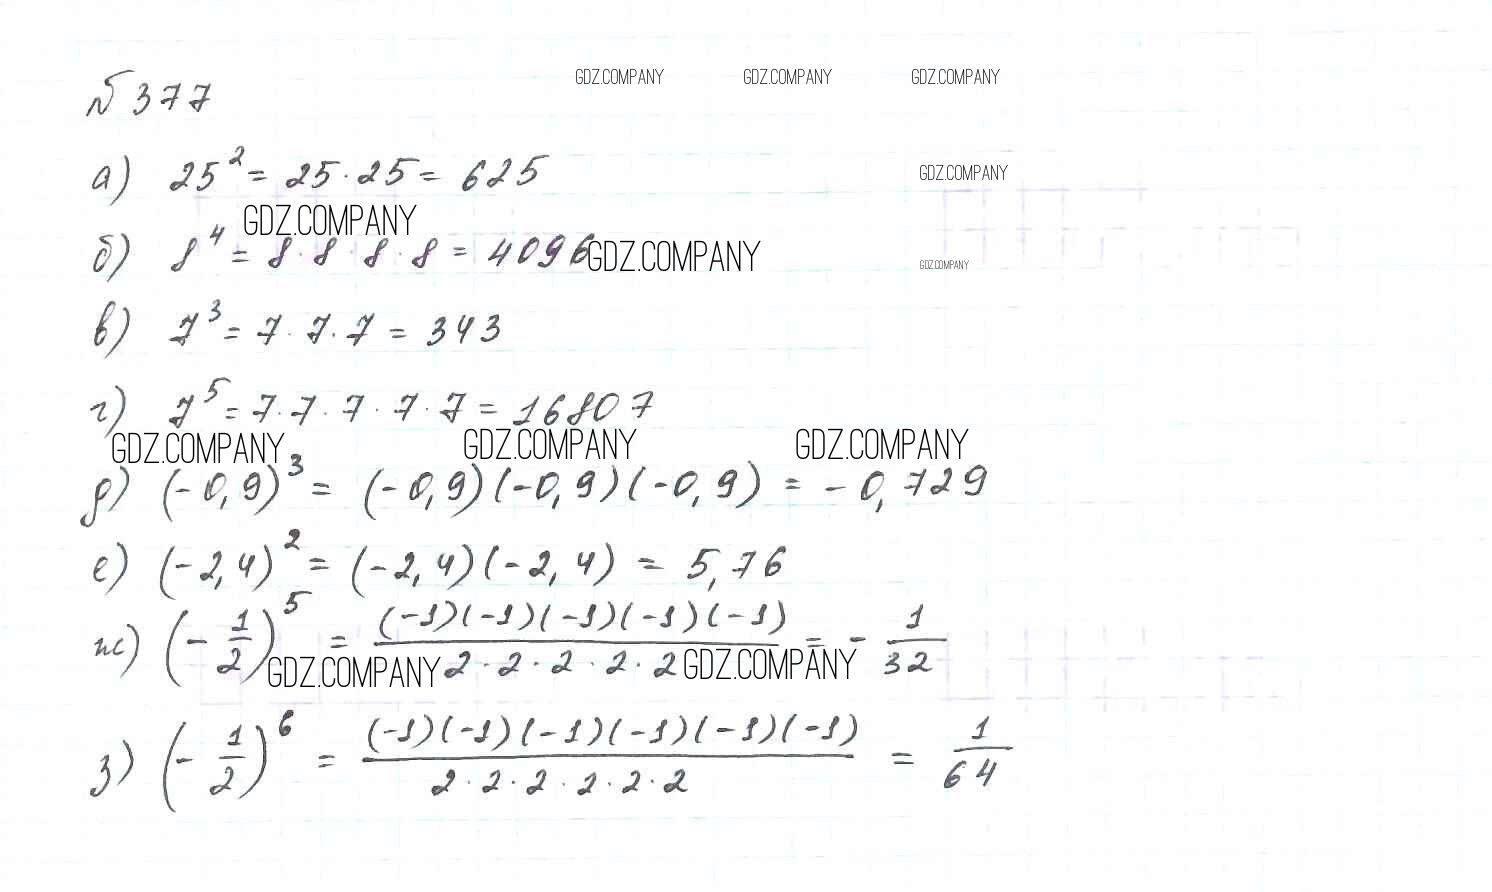 GDZ.COMPANY GDZ.COMPANY GDZ.COMPANY
№ 377
а) 25² = 25 · 25 = 625
GDZ.COMPANY
GDZ.COMPANY
б) 8⁴ = 8 · 8 · 8 · 8 = 4096
GDZ.COMPANY
GDZ.COMPANY
в) 7³ = 7 · 7 · 7 = 343
г) 7⁵ = 7 · 7 · 7 · 7 · 7 = 16807
GDZ.COMPANY GDZ.COMPANY GDZ.COMPANY
д) (-0,9)³ = (-0,9)(-0,9)(-0,9) = -0,729
е) (-2,4)² = (-2,4)(-2,4) = 5,76
ж) (-1/2)⁵ = (-1)(-1)(-1)(-1)(-1)/2·2·2·2·2 = -1/32
GDZ.COMPANY GDZ.COMPANY
з) (-1/2)⁶ = (-1)(-1)(-1)(-1)(-1)(-1)/2·2·2·2·2·2 = 1/64